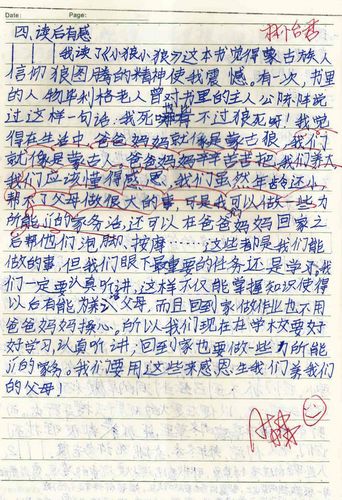 Date: Page:
四、读后有感
我读了《小狼小狼》这本书觉得蒙古族人
信仰狼图腾的精神使我震憾。有一次,书里
的人物毕利格老人曾对书里的主人公陈阵说
过这样一句话:我死都不过狼死呀!我觉
得在生活中,爸爸妈妈就像是蒙古狼,我们
就像是蒙古人,爸爸妈妈辛辛苦苦把我们养大
我们应该懂得感恩,我们虽然年龄还小,
帮不了父母做很大的事,可是我可以做一些力
所能的家务活,还可以在爸爸妈妈回家之
后帮他们泡脚、按摩……这些都是我们能
做的事,但我们眼下最重要的任务还是学习。我
们一定要认真听讲,这样不仅能掌握知识使得
以后有能力养父母,而且回到家做作业也不用
爸爸妈妈操心。所以我们现在在学校要好
好学习,认真听讲;回到家也要做一些力所能
的家务。我们要用这些来感恩生我们养我们
的父母!